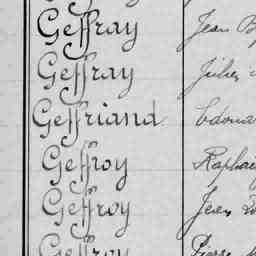 Geffray Jean
Geffray Jules
Geffriand
Geffroy Raphaë
Geffroy Jean
Geffroy Pierre